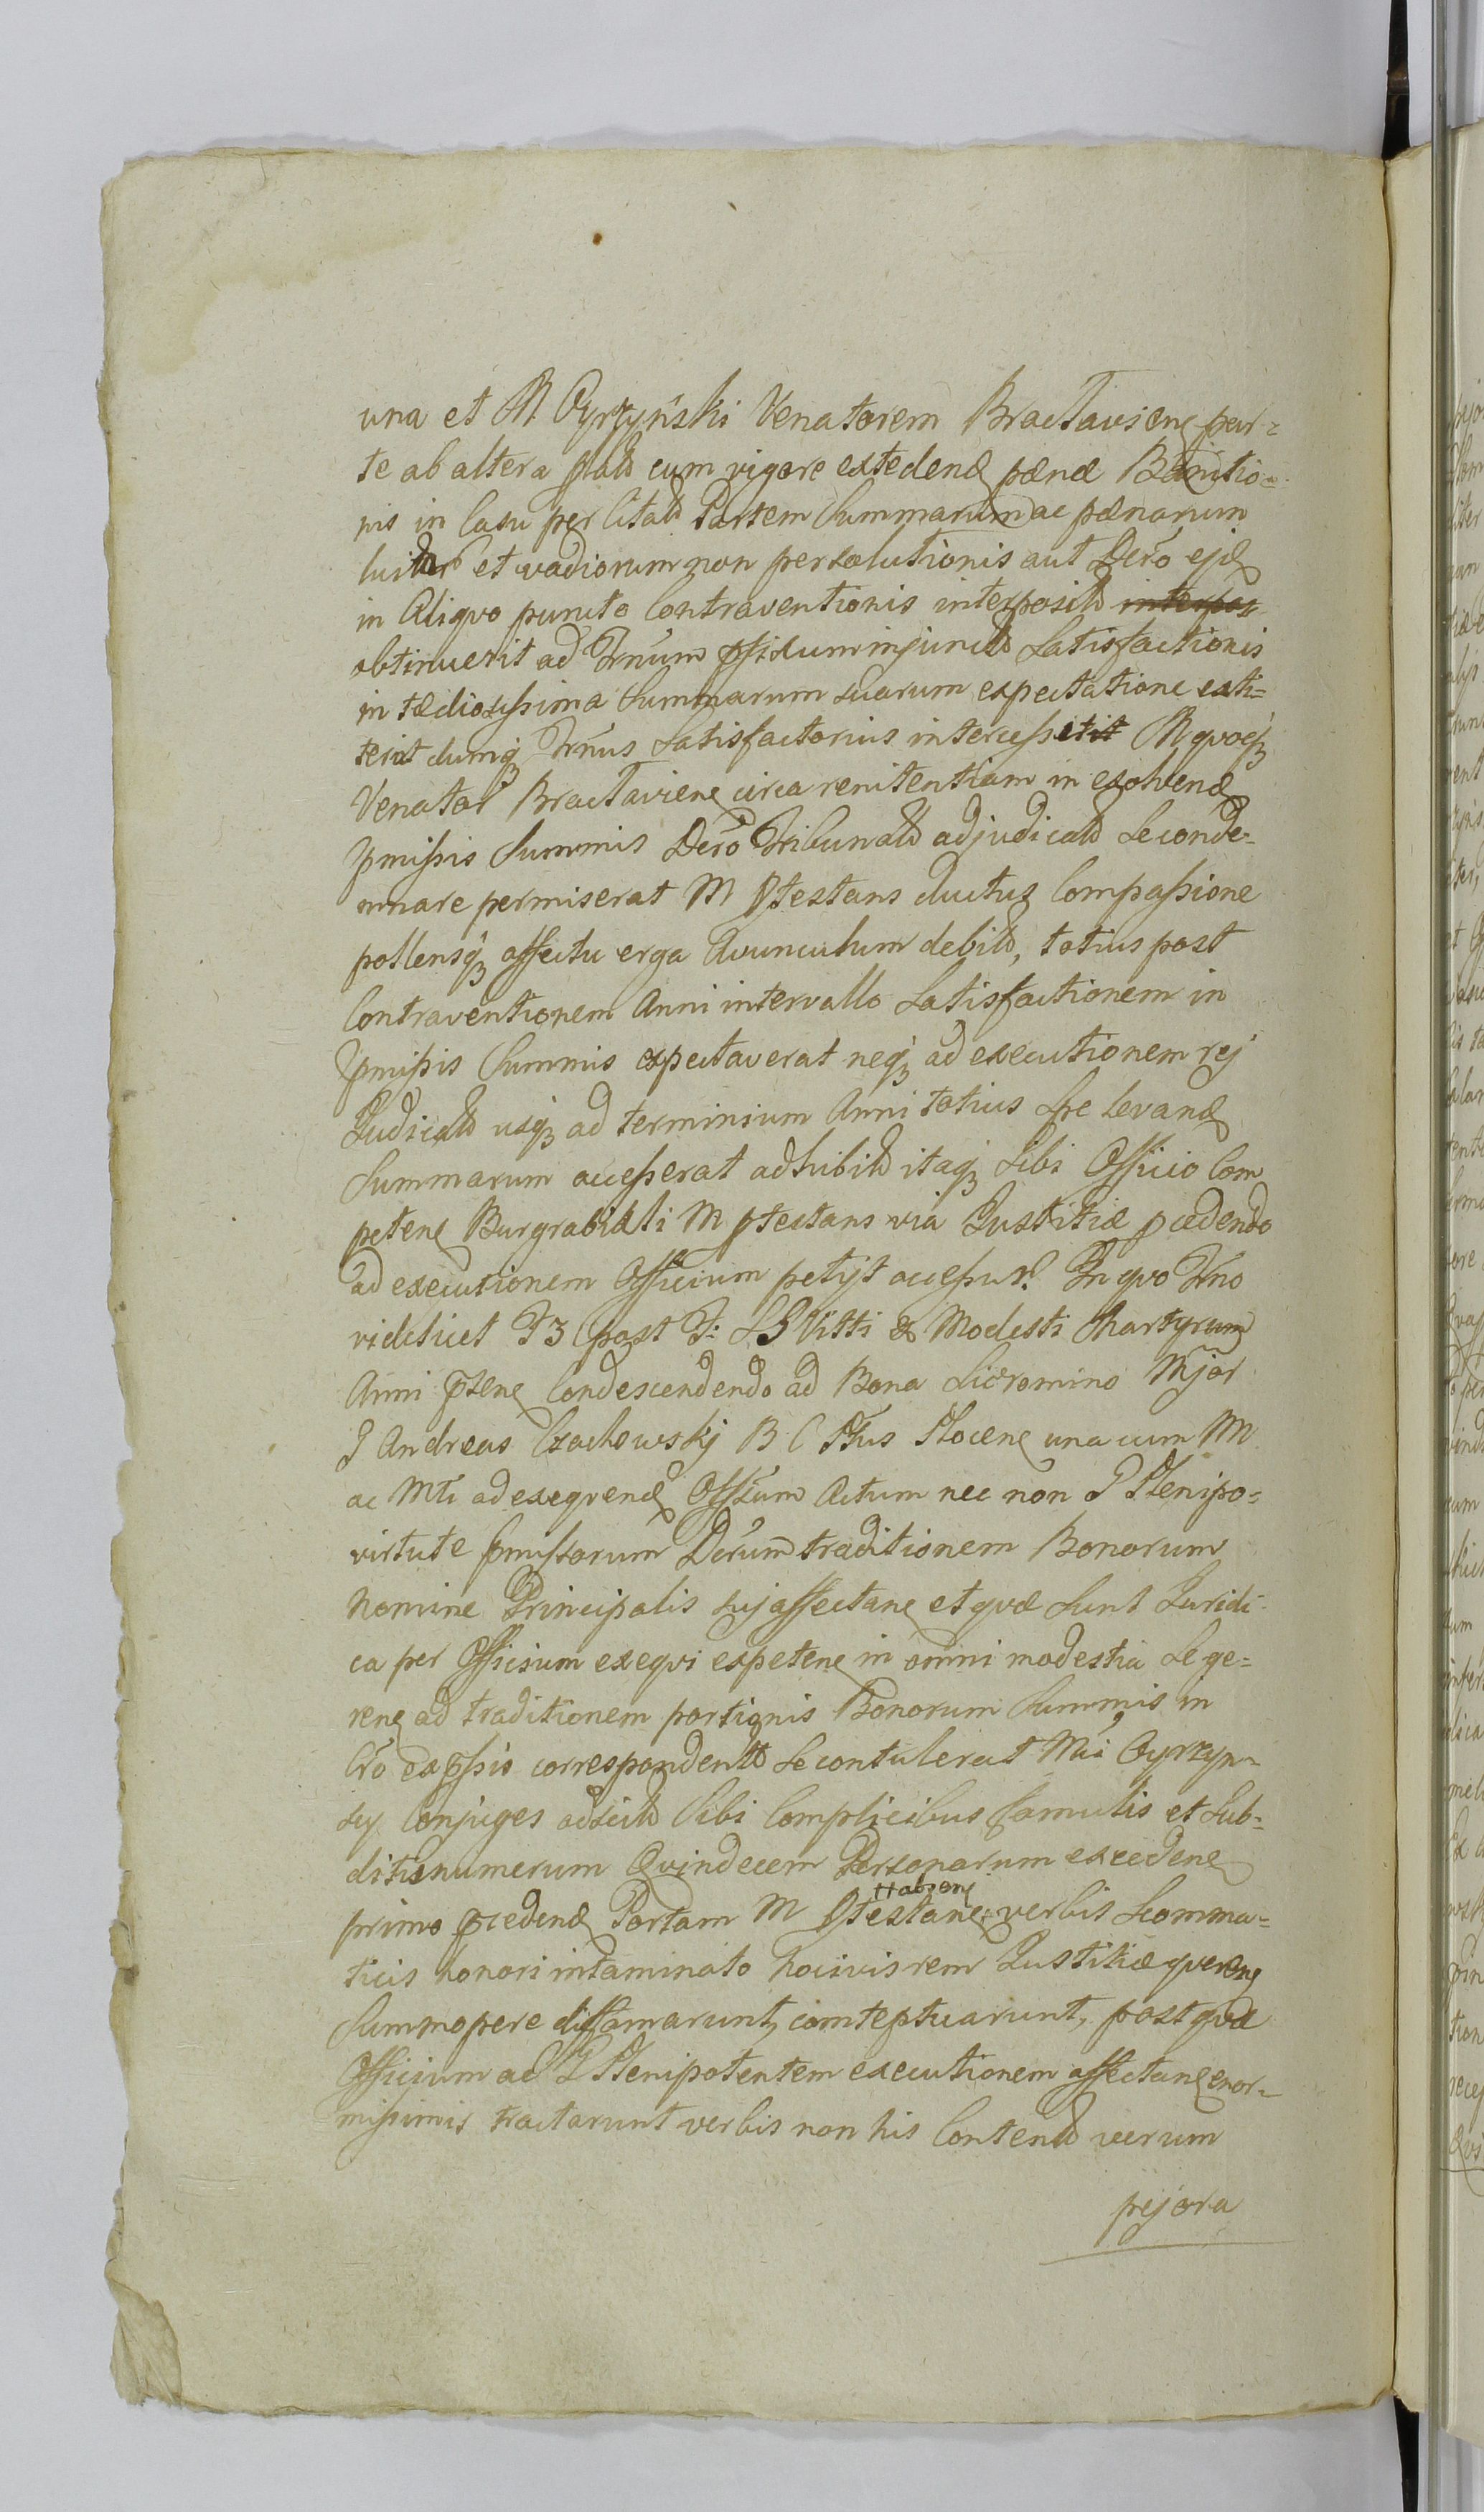 una et M Cyrzyński Venatorem Bractaviens par=
te ab altera lato cum vigore extedend pænæ Banitio=
nis in Casu per Citato Partem Summarum ac pænarum
luit et vadiorum non persolutionis aut Dero ejd
in Aliqvo puncto Contraventionis interposito interpos
obtinuerit ad Trnum injuncto Satisfactionis
in tædiosissima Summarum suarum expectatione exti=
terit dumq Trnus Satisfactorius intercessit M qvoq
Venator Bractaviens circa renitentiam in exolvend
pmissis Summis Dero Tribunato adjudicato Se conde=
mnare permiserat M Ptestans ductus Compassione
pollensq affectu erga Avunculum debito, totius post
Contraventionem Anni intervallo Satisfactionem in
pmissis Summis expectaverat neq ad executionem rej
Judicato usq ad terminium Anni totius Spe levand
Summarum accesserat adhibito itaq Sibi Officio Com
petens Burgrabiali M ptestans via Justitiæ pcedendo
ad executionem Officium petijt accessur? In qvo Trno
videlicet F3 post F: SS Vitti & Modesti Martyrum
Anni psens Condescendendo ad Bona Sieromino Mjor
J Andreas Czachowskj B C Pltus Plocens una cum M
ac Mti ad exeqvend Offium Actum nec non J Plenipo=
virtute pmissorum Derum traditionem Bonorum
Nomine Principalis suj affectans et qvæ Sunt Juridi=
ca per Officium exeqvi expetens in omni modestia Se ge=
rens ad traditionem portionis Bonorum Summis in
Cro expssis correspondento Se contulerat Mci Cyrzyn=
scy Conjuges adscito Sibi Complicibus famulis et Sub=
ditis numerum Qvindecem Personarum excedens
primo pcedend Portam M Ptestans Habsens verbis Scomma=
ticis honori intaminato hocivis rem Justitiæ qværens
Summopere diffamarunt, comteptuarunt, post qvæ
Officium ac J Plenipotentem executionem affectans enor=
missimis tractarunt verbis non his Contento verum
pejora